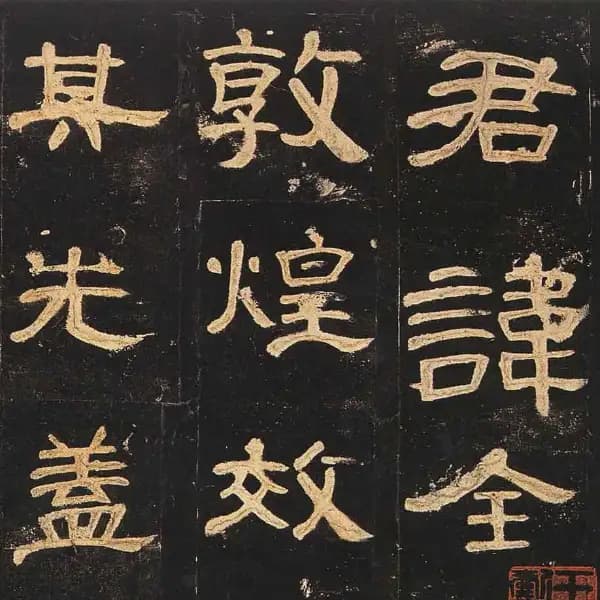 君諱全
敦煌效
其先蓋